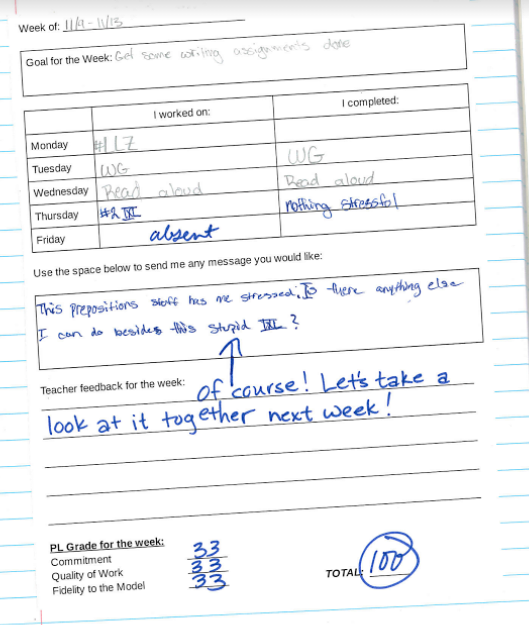 Week of: 11/9 - 11/13
Goal for the Week: Get some writing assignments done
I worked on: I completed:
Monday #1 LZ
Tuesday WG WG
Wednesday Read aloud Read aloud
Thursday #2 IXL nothing stressful
Friday absent
Use the space below to send me any message you would like:
This prepositions stuff has me stressed. Is there anything else
I can do besides this stupid IXL ?
Teacher feedback for the week: Of course! Let's take a
look at it together next week!
PL Grade for the week:
Commitment 33
Quality of Work 33
Fidelity to the Model 33
TOTAL: 100